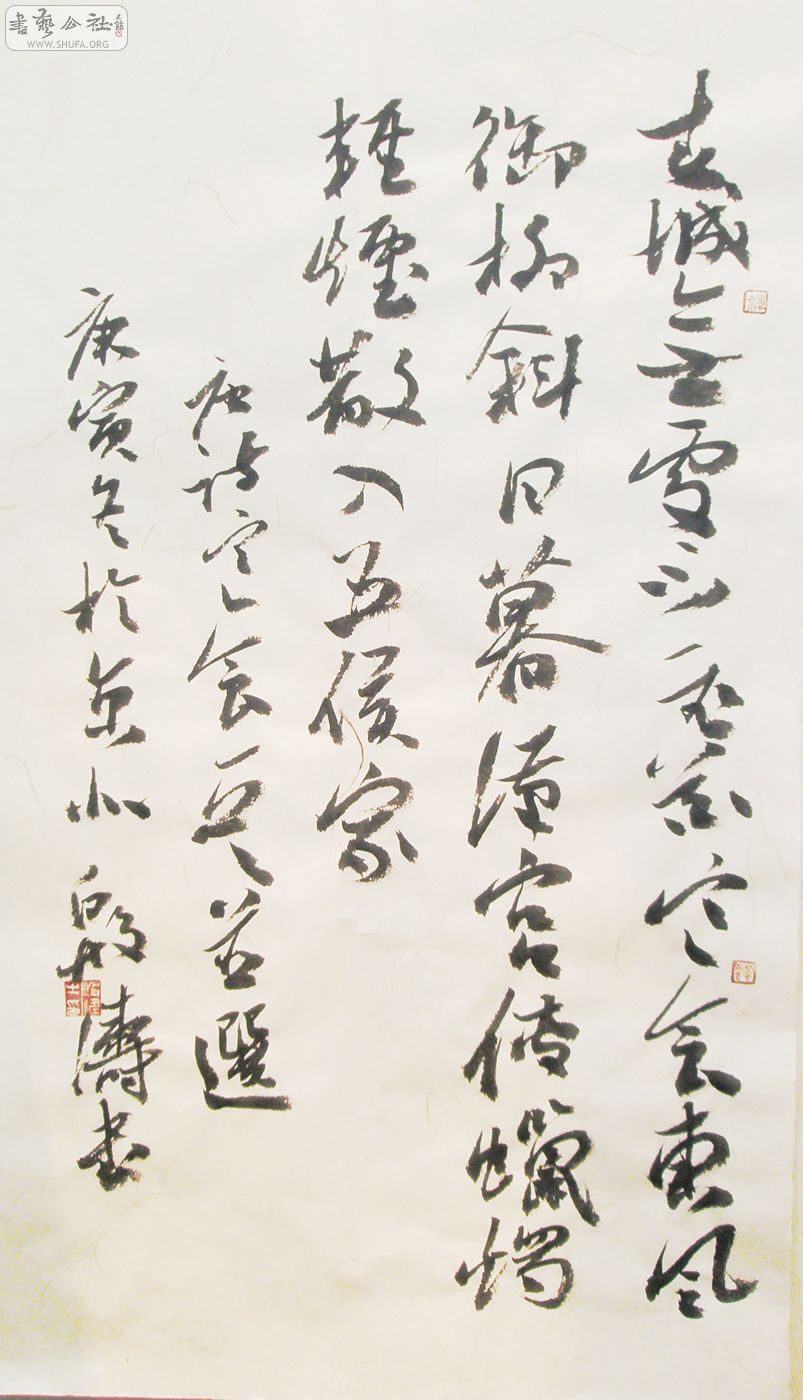 書藝公社
WWW.SHUFA.ORG
春城無處不飛花寒食東風
御柳斜日暮漢宮傳蠟燭
輕煙散入五侯家
唐詩寒食選
庚寅冬於京北殷濤書